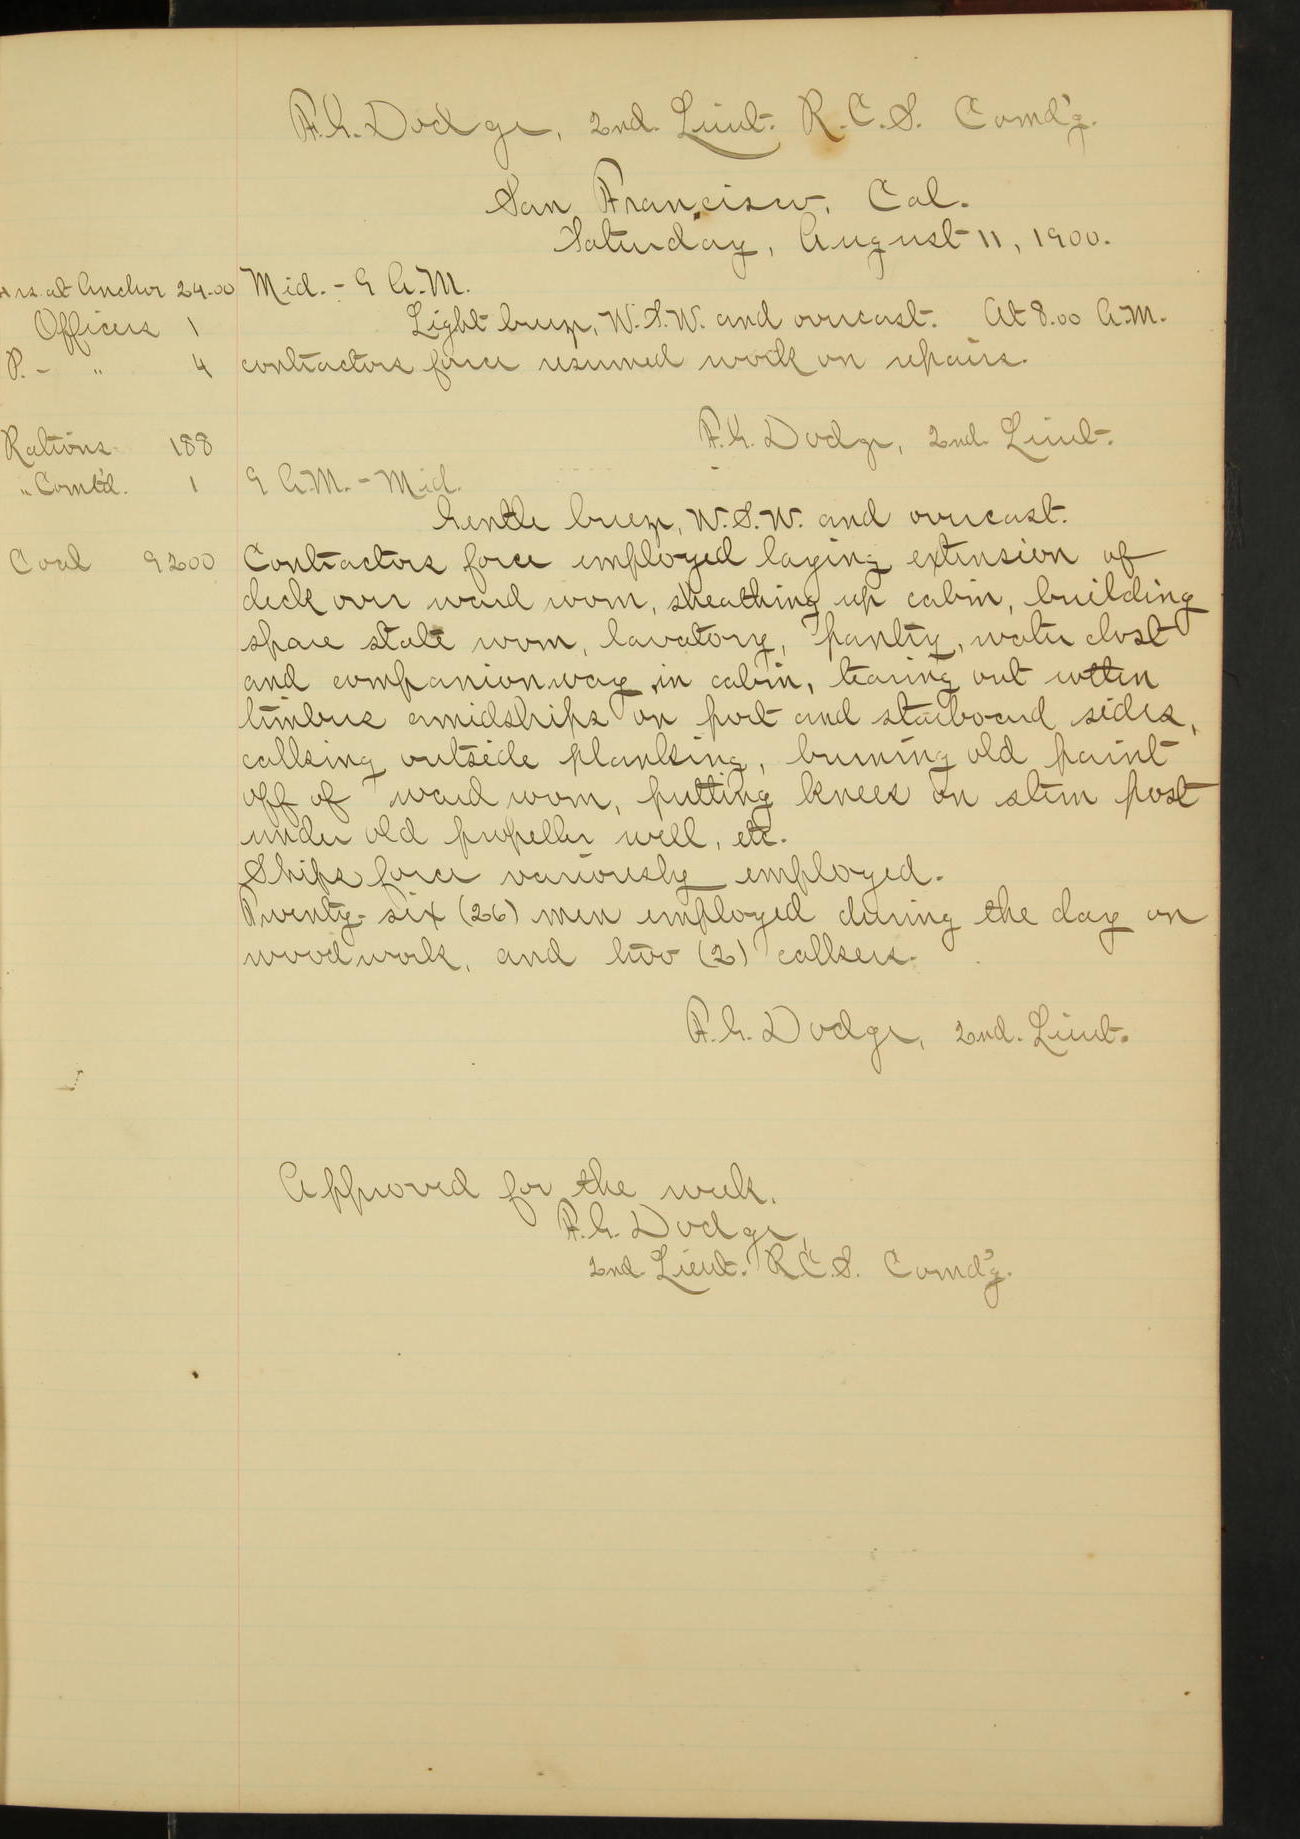 F.G. Dodge, 2nd. Lieut. R.C.S. Comd'g.
San Francisco, Cal.
Saturday, August 11, 1900.
Hrs. at Anchor 24.00 Mid. - 9 A.M.
Officers 1 Light breeze, W.S.W. and overcast. At 8.00 A.M.
P. - " 4 contractors force resumed work on repairs.
F.G. Dodge, 2nd. Lieut.
Rations 188
" Com't'd. 1 9 A.M. - Mid.
Gentle breeze, W.S.W. and overcast.
Coal 9200 Contractors force employed laying extension of
deck over ward room, sheathing up cabin, building
spare state room, lavatory, pantry, water closet
and companionway in cabin, tearing out rotten
timbers amidships on port and starboard sides,
calking outside planking, burning old paint
off of ward room, putting knees on stern post
under old propeller well, etc.
Ships force variously employed.
Twenty-six (26) men employed during the day on
woodwork, and two (2) calkers.
F.G. Dodge, 2nd. Lieut.
Approved for the week.
F.G. Dodge,
2nd. Lieut. R.C.S. Comd'g.